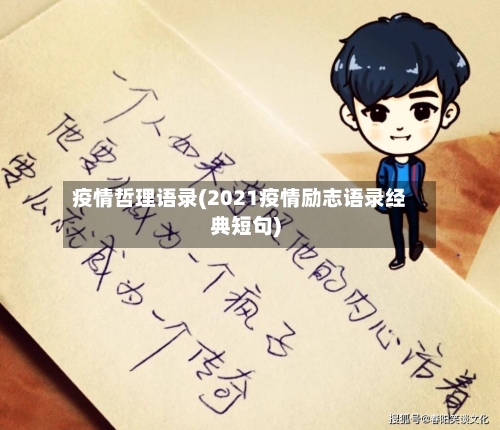 一个人如果 他的内心活着
他要么成为一个疯子
要么就成为一个传奇
疫情哲理语录(2021疫情励志语录经
典短句)
搜狐号@春阳笑谈文化